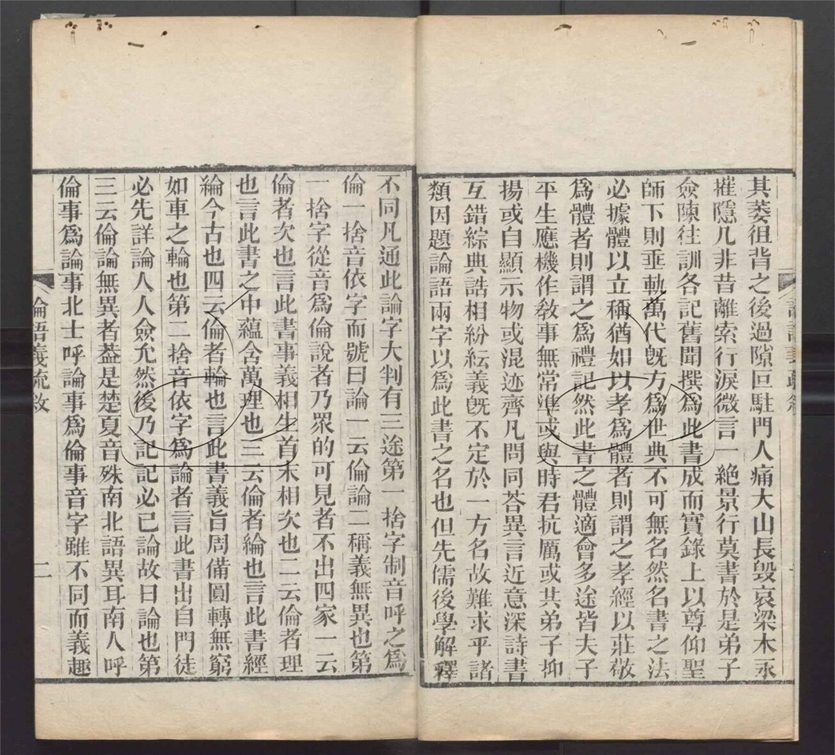 其萎徂背之後過隙叵駐門人痛大山長毀哀梁木永
摧隱几非昔離索行淚微言一絕景行莫書於是弟子
僉陳往訓各記舊聞撰爲此書成而實錄上以尊仰聖
師下則垂軌萬代旣方爲世典不可無名然名書之法
必據體以立稱猶如以孝爲體者則謂之孝經以莊敬
爲體者則謂之爲禮記然此書之體適會多途皆夫子
平生應機作敎事無常準或與時君抗厲或共弟子抑
揚或自顯示物或混迹齊凡問同荅異言近意深詩書
互錯綜典誥相紛紜義旣不定於一方名故難求乎諸
類因題論語兩字以爲此書之名也但先儒後學解釋
不同凡通此論字大判有三途第一捨字制音呼之爲
倫一捨音依字而號曰論一云倫論二稱義無異也第
一捨字從音爲倫說者乃眾的可見者不出四家一云
倫者次也言此書事義相生首末相次也二云倫者理
也言此書之中蘊含萬理也三云倫者綸也言此書經
綸今古也四云倫者輪也言此書義旨周備圓轉無窮
如車之輪也第二捨音依字爲論者言此書出自門徒
必先詳論人人僉允然後乃記記必已論故曰論也第
三云倫論無異者葢是楚夏音殊南北語異耳南人呼
倫事爲論事北士呼論事爲倫事音字雖不同而義趣
論語義疏敘
二